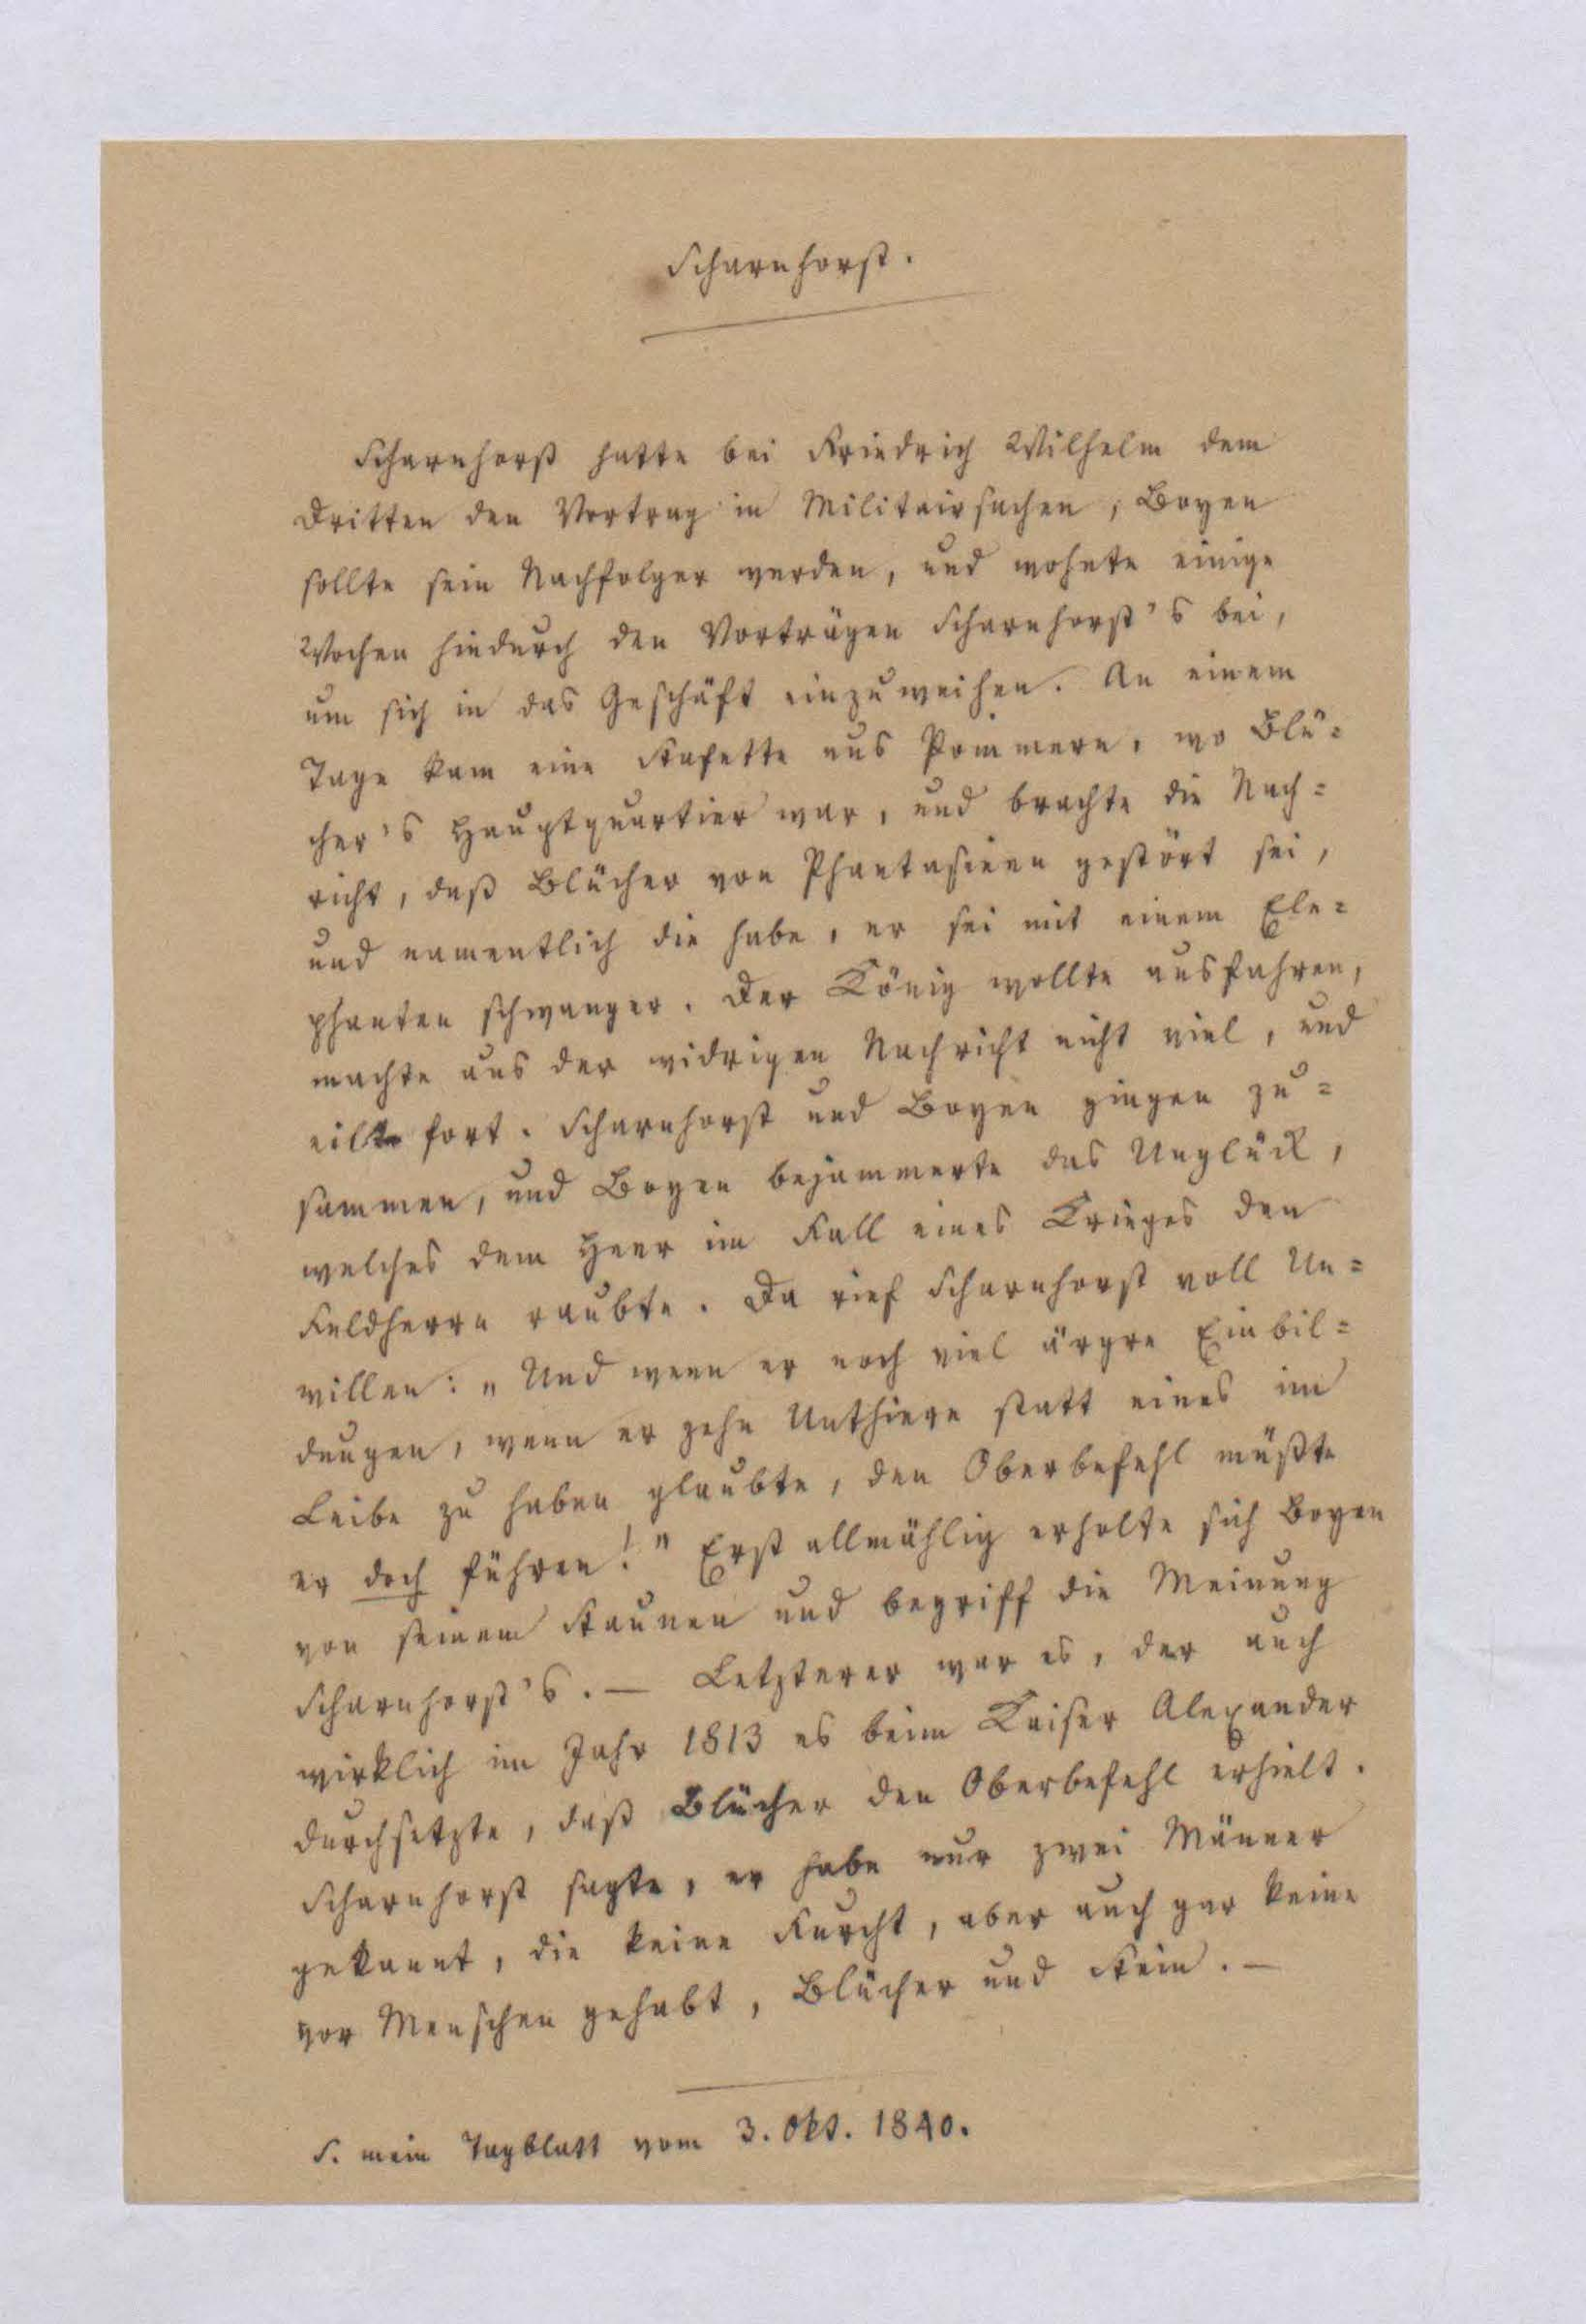 Scharnhorst.
Scharnhorst hatte bei Friedrich Wilhelm dem
Dritten den Vortrag in Militairsachen, Boyen
sollte sein Nachfolger werden, und wohnte einige
Wochen hindurch den Vorträgen Scharnhorst's bei,
um sich in das Geschäft einzuweihen. An einem
Tage kam eine Stafette aus Pommern, wo Blü=
cher's Hauptquartier war, und brachte die Nach=
richt, daß Blücher von Phantasieen gestört sei,
und namentlich die habe, er sei mit einem Ele=
phanten schwanger. Der König wollte ausfahren,
machte aus der widrigen Nachricht nicht viel, und
eilte fort. Scharnhorst und Boyen gingen zu=
sammen, und Boyen bejammerte das Unglück,
welches dem Heer im Fall eines Krieges den
Feldherrn raubte. Da rief Scharnhorst voll Un=
willen: „Und wenn er noch viel ärgre Einbil=
dungen, wenn er zehn Unthiere statt eines im
Leibe zu haben glaubte, den Oberbefehl müßte
er doch führen!" Erst allmählig erholte sich Boyen
von seinem Staunen und begriff die Meinung
Scharnhorst's. — Letzterer war es, der auch
wirklich im Jahr 1813 es beim Kaiser Alexander
durchsetzte, daß Blücher den Oberbefehl erhielt.
Scharnhorst sagte, er habe nur zwei Männer
gekannt, die keine Furcht, aber auch gar keine
vor Menschen gehabt, Blücher und Stein. —
S. mein Tagblatt vom 3. Okt. 1840.